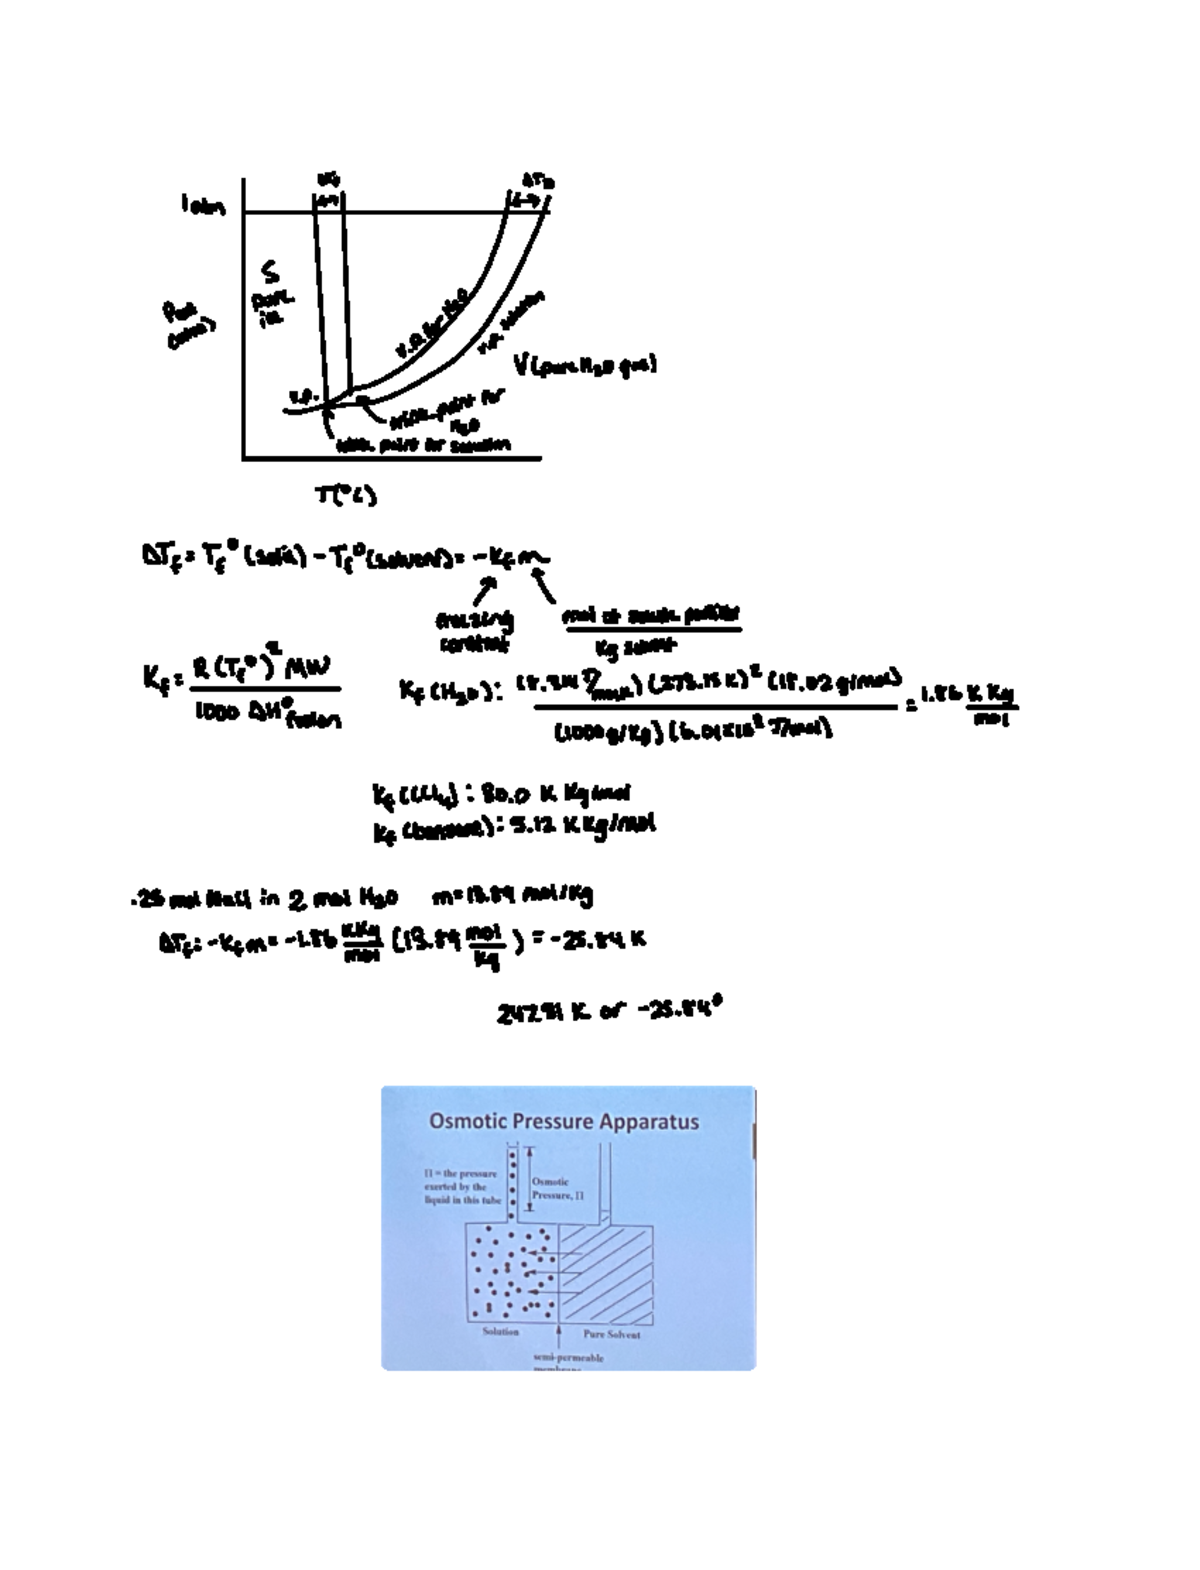 1 atm
ΔTb
S
pure
ice
Pext
(atm)
V.P. for H2O
V.P. solution
V(pure H2O gas)
V.P.
triple point for
H2O
triple point for solution
T(°C)
ΔTf = Tf° (soln) - Tf° (solvent) = -Kf m
freezing
constant
mol of solute particles
Kg solvent
Kf = R(Tf°)² MW
1000 ΔH° fusion
Kf (H2O): (8.314 J/molK) (273.15 K)² (18.02 g/mol) = 1.86 K Kg
mol
(1000 g/Kg) (6.01x10³ J/mol)
Kf (CCl4): 30.0 K Kg/mol
Kf (benzene): 5.12 K Kg/mol
.25 mol NaCl in 2 mol H2O m = 13.89 mol/Kg
ΔTf: -Kf m = -1.86 K Kg/mol (13.89 mol/Kg) = -25.84 K
247.31 K or -25.84°
Osmotic Pressure Apparatus
Π = the pressure
exerted by the
liquid in this tube
Osmotic
Pressure, Π
Solution
Pure Solvent
semi-permeable
membrane